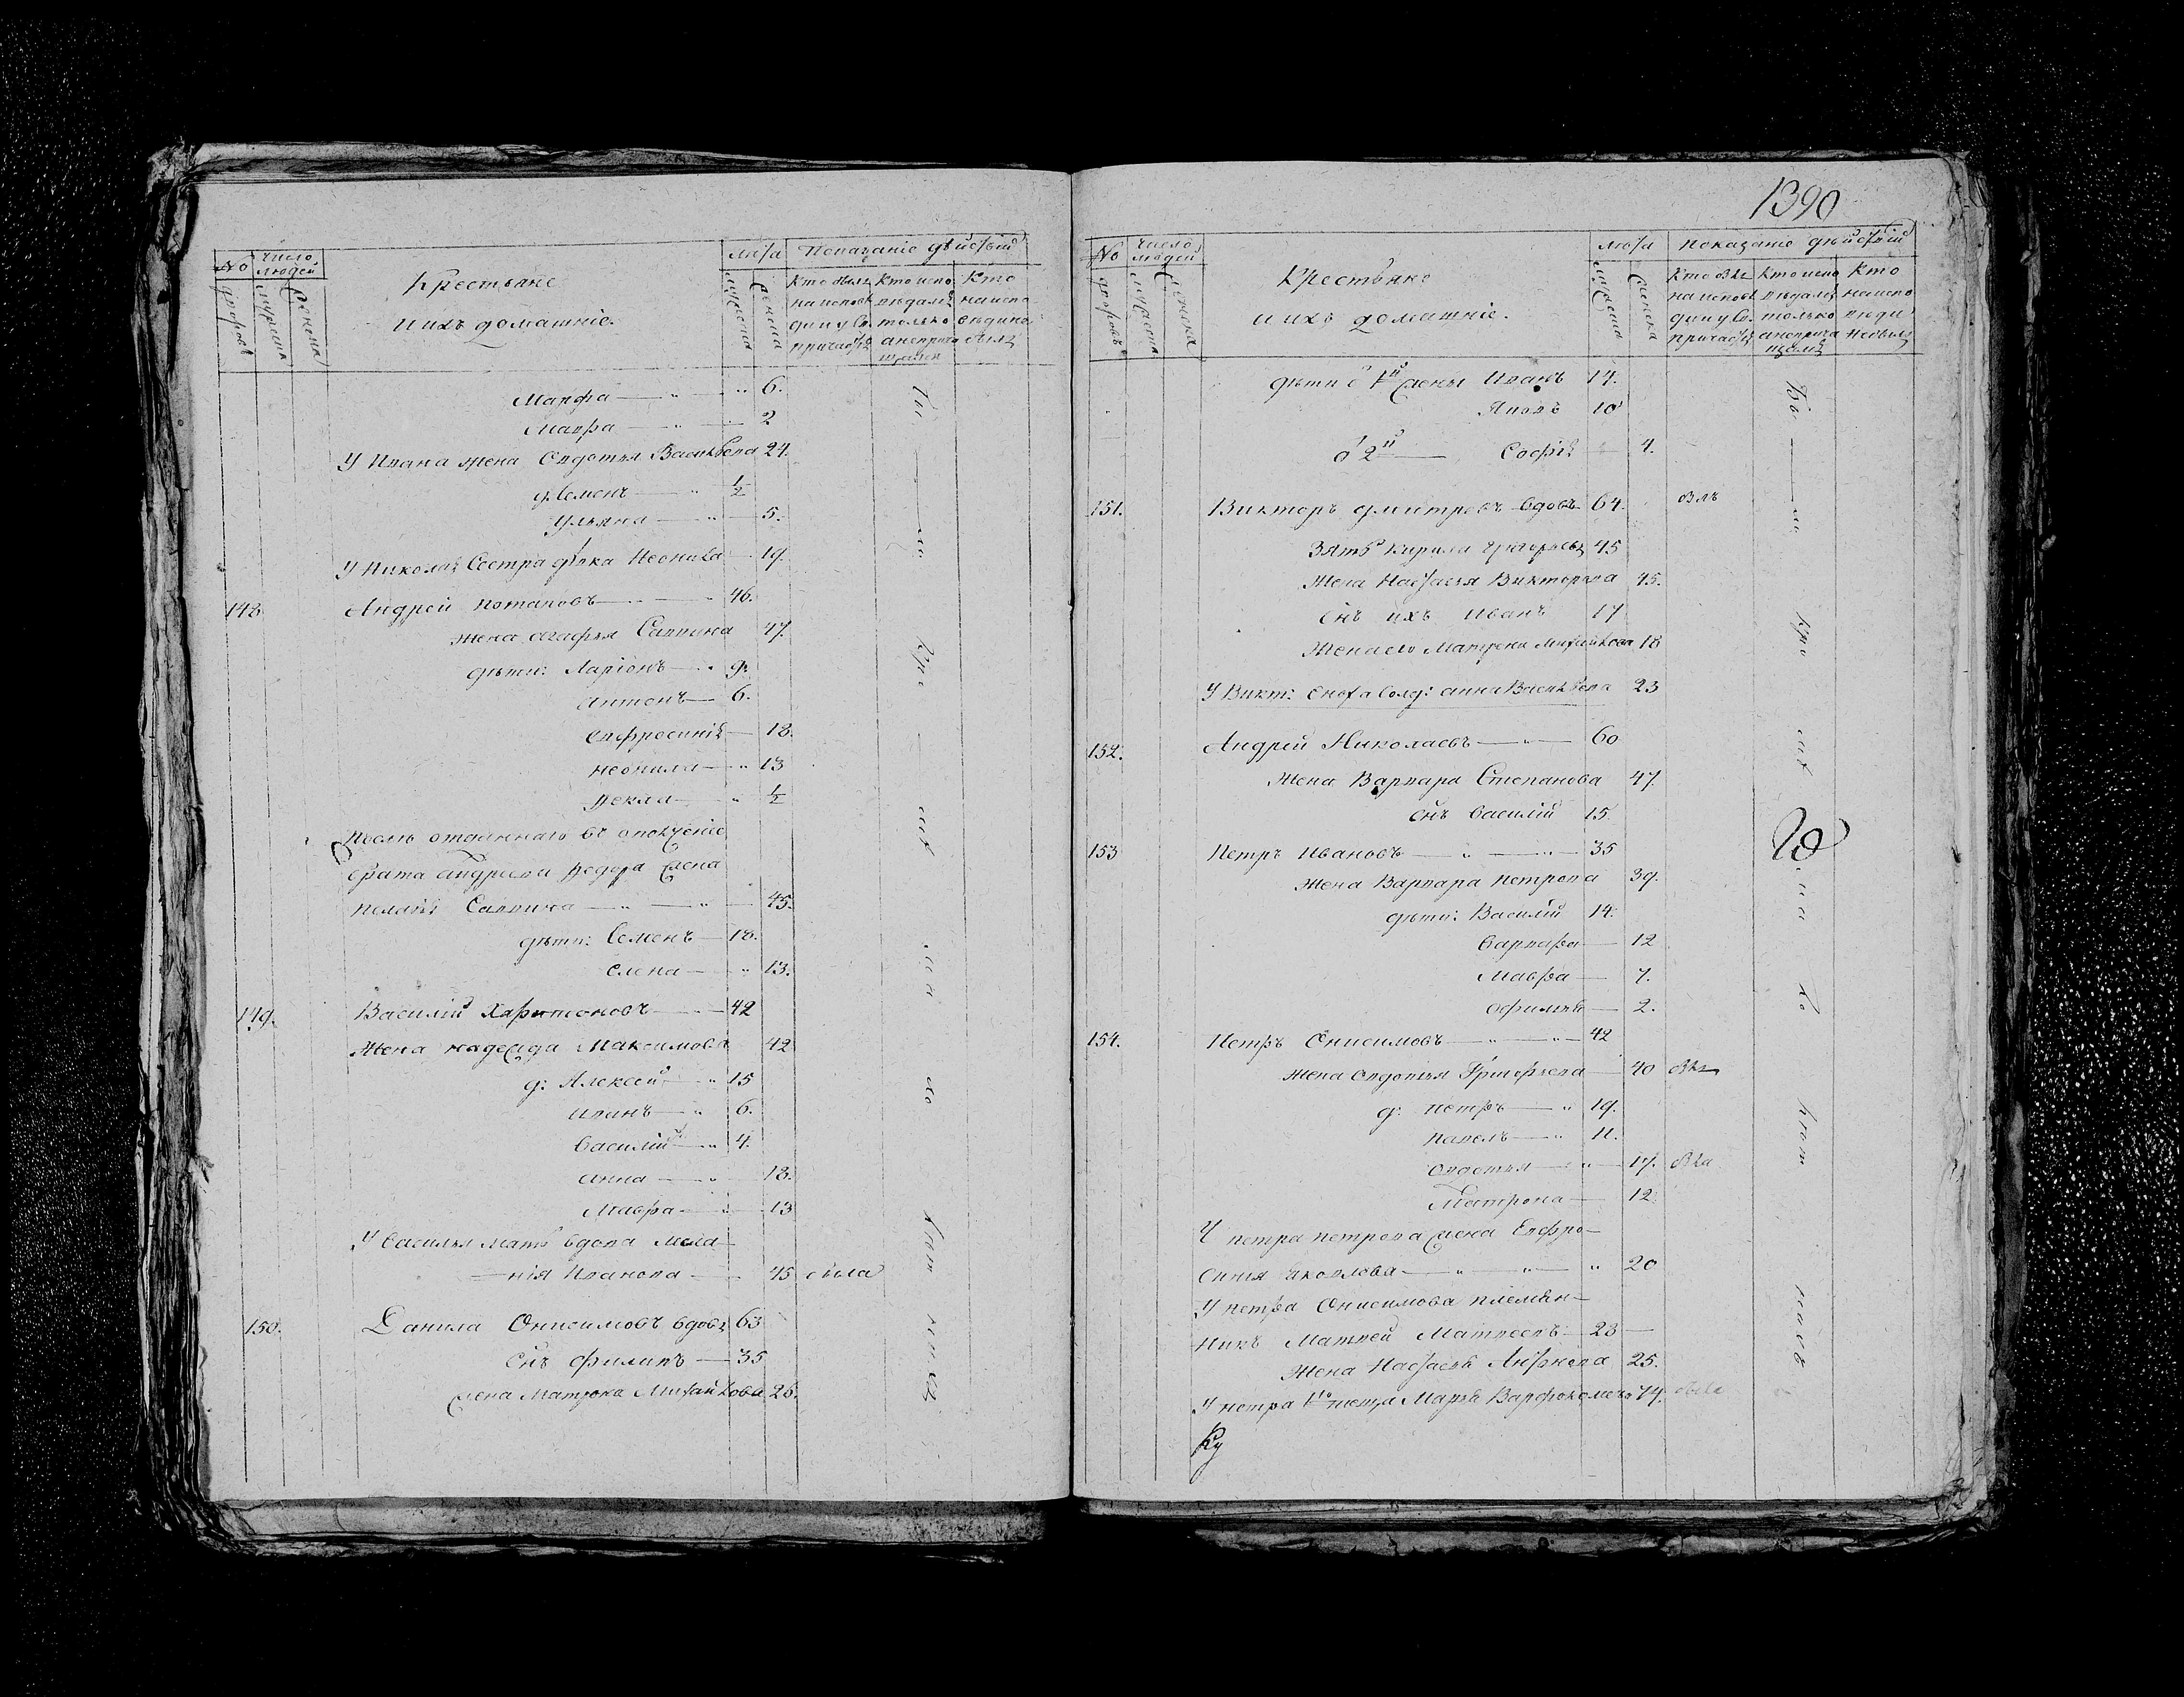 № дворовъ
Число людей
мужеска
женска
Крестьяне
и ихъ домашніе.
лѣта
мужеска
женска
Показаніе дѣйствій
Кто былъ на исповѣди и у Св. причастія
Кто исповѣдался только а не причащался
Кто на исповѣди не былъ
Марфа — " — " 6.
Мавра — " — 2
У Ивана жена Овдотья Васильева 24.
д: Семенъ — " 1/2
Ульяна — " — 5.
У Николая сестра дѣвка Неонила — 19.
148. Андрей Потаповъ — " — 46.
жена Агафья Саввина 47.
дѣти: Ларіонъ — " 9.
Антонъ — 6.
Евфросинія — 18.
Неонила — " 13
Фекла — " 1/2
Послѣ отданнаго въ ополченіе
брата Андреева Федора жена
Пелагея Саввина — " — " — 45.
дѣти: Семенъ — 18.
Елена — " 13.
149. Василій Харитоновъ — 42
Жена Надежда Максимова 42
д: Алексей — " 15
Иванъ — " 6.
Василій — " 4.
Анна — " 18.
Мавра — " 13
У Василья мать вдова Мела-
-нія Иванова — 75 была
150. Данила Онисимовъ вдовъ 63
сынъ Филипъ — 35
жена Матрона Михайлова 26.
1390
№ дворовъ
Число людей
мужеска
женска
Крестьяне
и ихъ домашніе.
лѣта
мужеска
женска
Показаніе дѣйствій
Кто былъ на исповѣди и у Св. причастія
Кто исповѣдался только а не причащался
Кто на исповѣди не былъ
дѣти ѿ 1й жены Иванъ 14.
Яковъ 10
ѿ 2й — Софія 4.
151. Викторъ Дмитревъ вдовъ 64. былъ
Зять Кирила Григорьевъ 45
Жена Настасья Викторова 45.
снъ ихъ Иванъ 17
Жена его Матрена Михайлова 18
У Викт: сноха солд: Анна Васильева 23
152. Андрей Николаевъ — " — 60
Жена Варвара Степанова 47.
снъ Василій 15.
153 Петръ Ивановъ — " — " — 35
Жена Варвара Петрова 39.
дѣти: Василій 14.
Варвара — 12
Мавра — 7.
Офимья — 2.
154. Петръ Онисимовъ — " — " — 42
Жена Овдотья Григорьева — 40 была
д: Петръ — " 19.
Павелъ — " 11.
— " — 17. была
Матрона — 12.
У Петра Петрова жена Евфро-
синія Яковлева — " — " — " 20
У Петра Онисимова племян-
никъ Матвей Матвеевъ — 23 —
Жена Настасья 25.
У Петра теща Марья Варфоломеева 74. была